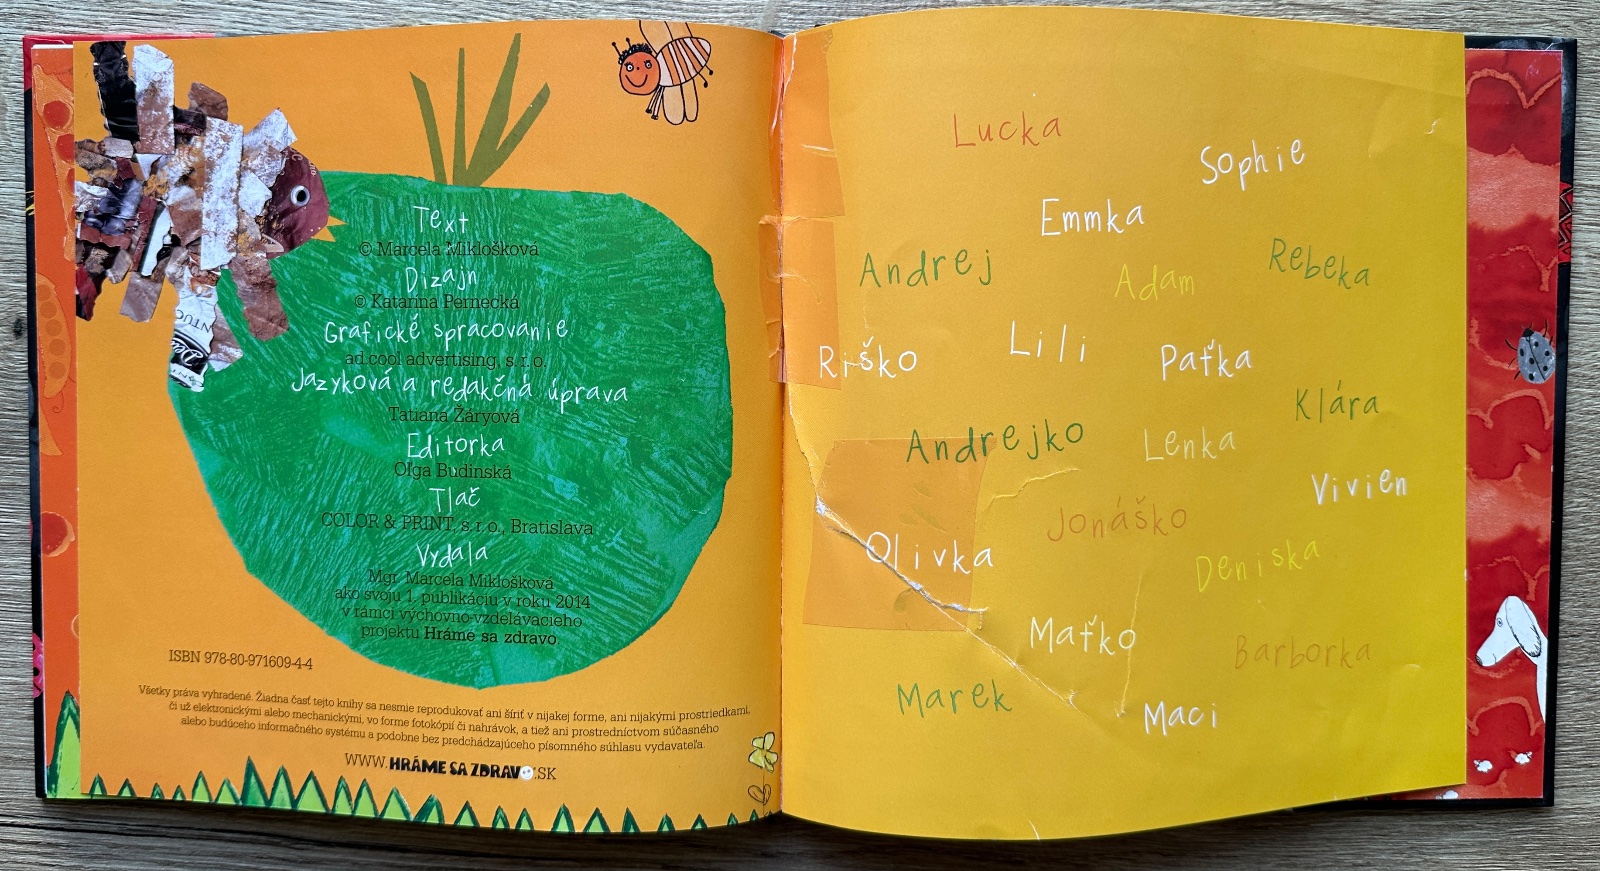 Text
© Marcela Miklošková
Dizajn
© Katarína Pernecká
Grafické spracovanie
ad.cool advertising, s. r. o.
Jazyková a redakčná úprava
Tatiana Žáryová
Editorka
Oľga Budinská
Tlač
COLOR & PRINT, s. r. o., Bratislava
Vydala
Mgr. Marcela Miklošková
ako svoju 1. publikáciu v roku 2014
v rámci výchovno-vzdelávacieho
projektu Hráme sa zdravo.
ISBN 978-80-971609-4-4
Všetky práva vyhradené. Žiadna časť tejto knihy sa nesmie reprodukovať ani šíriť v nijakej forme, ani nijakými prostriedkami,
či už elektronickými alebo mechanickými, vo forme fotokópií či nahrávok, a tiež ani prostredníctvom súčasného
alebo budúceho informačného systému a podobne bez predchádzajúceho písomného súhlasu vydavateľa.
WWW.HRÁME SA ZDRAVO.SK
Lucka
Sophie
Emmka
Andrej
Adam
Rebeka
Riško
Lili
Paťka
Klára
Andrejko
Lenka
Vivien
Jonáško
Olivka
Deniska
Maťko
Barborka
Marek
Maci